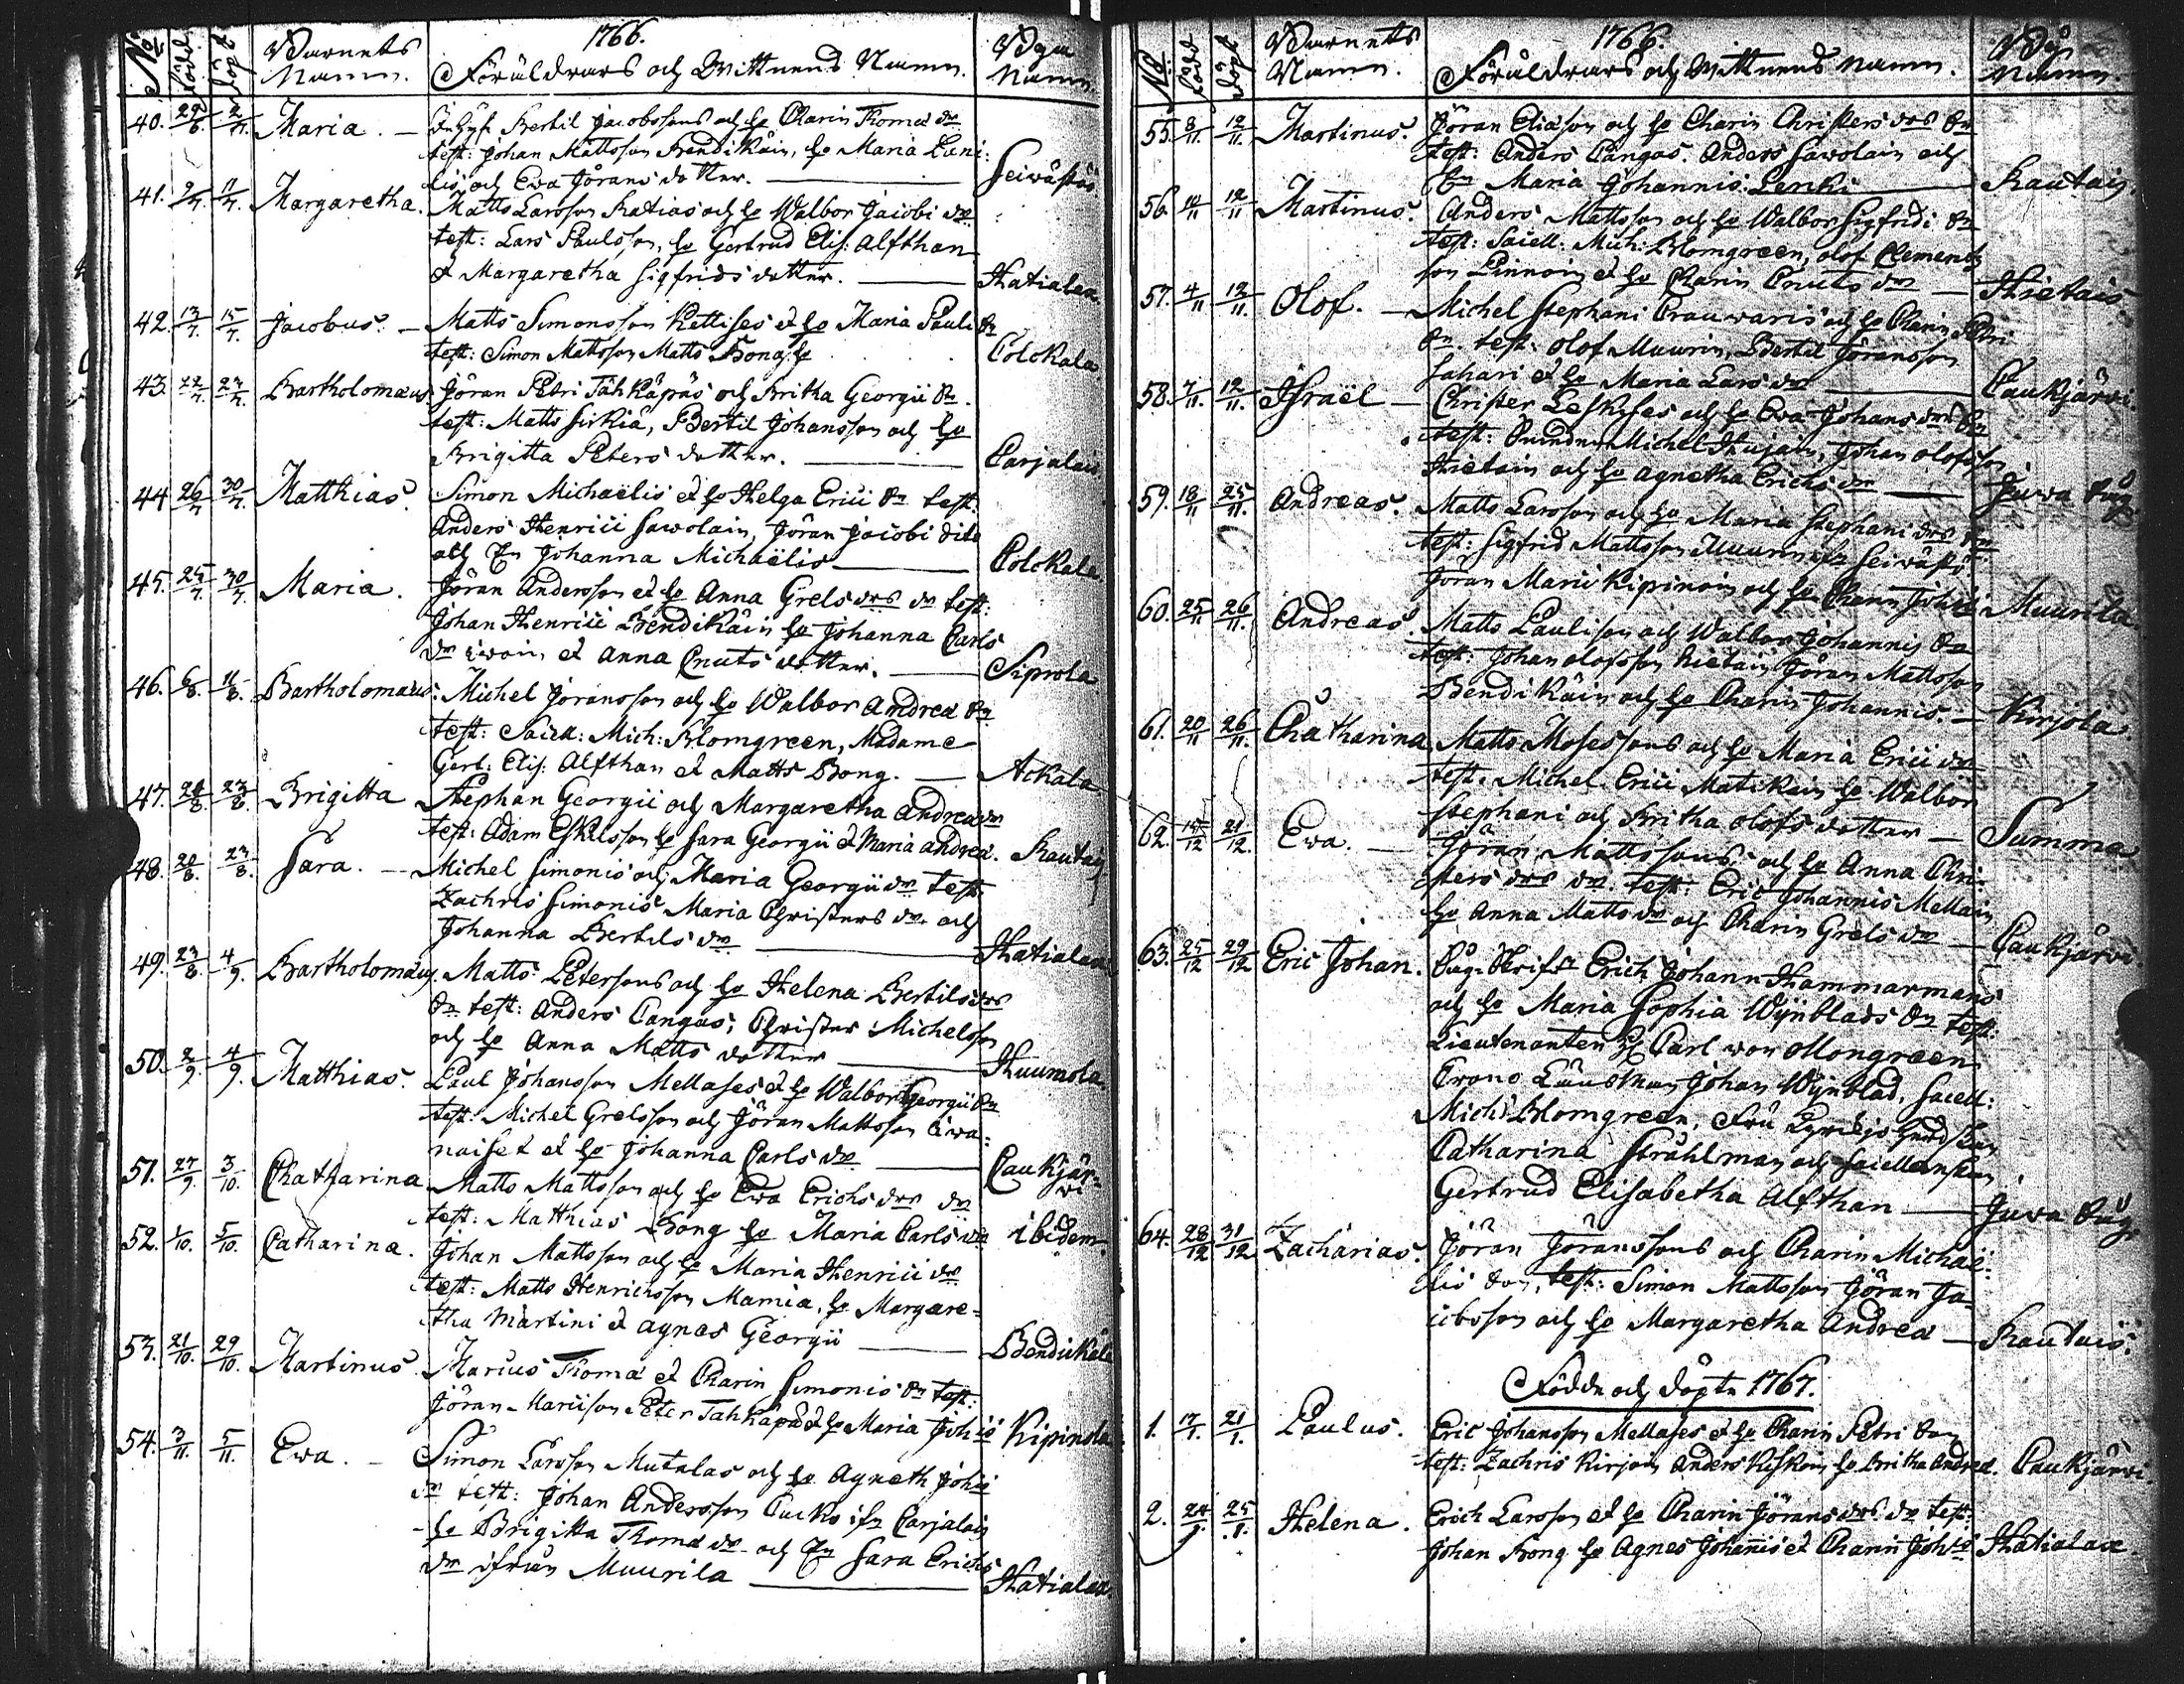 1766.
No född döpt Barnets Namn. Föräldrars och Wittnens Namn. Bya Namn
40. 29/6. 2/7. Maria. Bertil Jacobssons och ho Charin Thomæ dr
test: Johan Mattsson Bendikäin, ho Maria Lauri:
dis och Ewa Jörans dotter. Seiwästö
41. 9/7. 11/7. Margaretha. Matts Larsson Ratias och ho Walbor Jacobi dr
test: Lars Paulsson, ho Gertrud Elis: Alfthan
et Margaretha Sigfrids dotter. Hatialax
42. 13/7. 15/7. Jacobus. Matts Simonsson Kettises et ho Maria Pauli dr
test: Simon Mattsson Matts Bong ho Colckala
43. 22/7. 27/7. Bartholomæus Jöran Petri Tähkäpäs och Britha Georgii dr.
test: Matts Sirkiä, Bertil Johansson och ho
Brigitta Peters dotter. Carjalais
44 26/7 30/7. Matthias. Simon Michaëlis et ho Helga Erici dr test.
Anders Henrici Sawolain, Jöran Jacobi dito
och Johanna Michaëlis Colckala
45. 25/7. 30/7. Maria. Jöran Andersson et ho Anna Grels drs dr test:
Johan Henrici Bendikäin ho Johanna Carls
dr et Anna Cnuts dotter. Siprola
46. 6/8. 11/8. Bartholomæus: Michel Jöransson och ho Walbor Andreæ dr
test: Sacell: Mich: Blomgreen, Madame
Gert: Elis: Alfthan et Matts Bong. Ackala
47. 20/8. 23/8. Brigitta Stephan Georgii och Margaretha Andreæ dr
test: Adam Eskilsson ho Sara Georgii et Maria Andreæ. Rautais
48. 20/8. 23/8. Sara. Michel Simonis och Maria Georgii dr test
Zachris Simonis Maria Christers dr och
Johanna Bertils dr Hatialax
49. 23/8. 4/9. Bartholomæus. Matts Peterssons och ho Helena Bertils drs
dr test: Anders Cangas, Christer Michelsson
och ho Anna Matts dotter Huumola
50. 2/9. 4/9. Matthias. Paul Johansson Mellases et ho Walbor Georgii dr
test: Michel Grelsson och Jöran Mattsson Ciwa=
naiset et ho Johanna Carls dr Caukjär=
wi
51. 27/9. 3/10. Chatharina Matts Mattsson och ho Ewa Erichs drs dr
test: Matthias Bong ho Maria Carls dr ibidem
52. 1/10. 5/10. Catharina. Johan Mattsson och ho Maria Henrici dr
test: Matts Henrichsson Mamia, ho Margare=
tha Martini et Agnes Georgii Bendickälä
53. 21/10. 29/10. Martinus. Marcus Thomæ et Charin Simonis dr test:
Jöran Marcisson Peter Tähkäpä et ho Maria Johis Kipinola
54. 3/11. 5/11. Ewa. Simon Larsson Mutalas och ho Agneth Johis
dr test: Johan Andersson Cucko ifr Carjalais
ho Brigitta Thomæ dr och Sara Erichs
dr ifrån Muurila Hatialax
1766.
No född döpt Barnetts Namn. Föräldrars och Wittnens Namn. By Namn.
55. 8/11. 12/11. Martinus. Jöran Eliæson och ho Charin Christers drs dr
test: Anders Cangas. Anders Sawolain och
Maria Johannis: Lenki Rautais.
56. 10/11 12/11 Martinus. Anders Mattsson och ho Walbor Sigfridi dr
test: Sacell: Mich: Blomgreen, Olof Clements
son Pinnoin et ho Charin Cnuts dr Hietais
57. 4/11 12/11. Olof. Michel Stephani Crauwaris och ho Charin Petri
dr. test: Olof Muurin, Bertil Jöransson
Sahari et ho Maria Lars dr Caukjärwi.
58. 7/11. 12/11. Israël Christer Leskyses och ho Ewa Johans drs dr
test: Michel Hujain, Johan Olofsson
Hietain och ho Agnetha Erichs dr Juwa Rug
59. 18/11 25/11. Andreas. Matts Larsson och ho Maria Stephani drs dr
test: Sigfrid Mattsson Muurin ifr Seiwästö
Jöran Marci Kipinoin och ho Charin Johis Muurila
60. 25/11 26/11. Andreas Matts Paulison och Walbor Johannis dr
test: Johan Olofsson Hietain Jöran Mattsson
Bendikäin och ho Charin Johannis. Kirjola.
61. 20/11 26/11. Chatharina Matts Mosessons och ho Maria Erici dr
test. Michel Erici Matikain ho Walbor
Stephani och Britha Olofs dotter Summa
62. 15/12 21/12. Ewa. Jöran Mattssons och ho Anna Chri=
sters drs dr. test: Eric Johannis Mellain
ho Anna Matts dr och Charin Grels dr Caukjärwi.
63. 25/12 29/12 Eric Johan. Rug. Skrifr Erich Johann Hammarmans
och ho Maria Sophia Wijnblads dr test:
Lieutenanten H Carl von Mongreen
Crono Länsman Johan Wijnblad, Sacell:
Mich: Blomgreen, Fru Kyrckjoherdskan
Catharina Stråhlman och Sacellanskan
Gertrud Elisabetha Alfthan Juwa Rug
64. 28/12 31/12 Zacharias. Jöran Jöranssons och Charin Michaë=
lis dr, test: Simon Mattsson Jöran Ja=
cobsson och ho Margaretha Andreæ Rautais.
Födde och döpte 1767.
1. 17/1. 21/1. Paulus. Eric Johansson Mellases et ho Charin Petri dr
test: Zachris Kirjoin Anders Kiskoin ho Britha Andreæ. Caukjärwi
2. 24/1 25/1. Helena. Erich Larsson et ho Charin Jörans drs dr test:
Johan Bong ho Agnes Johannis et Charin Johis Hatialax